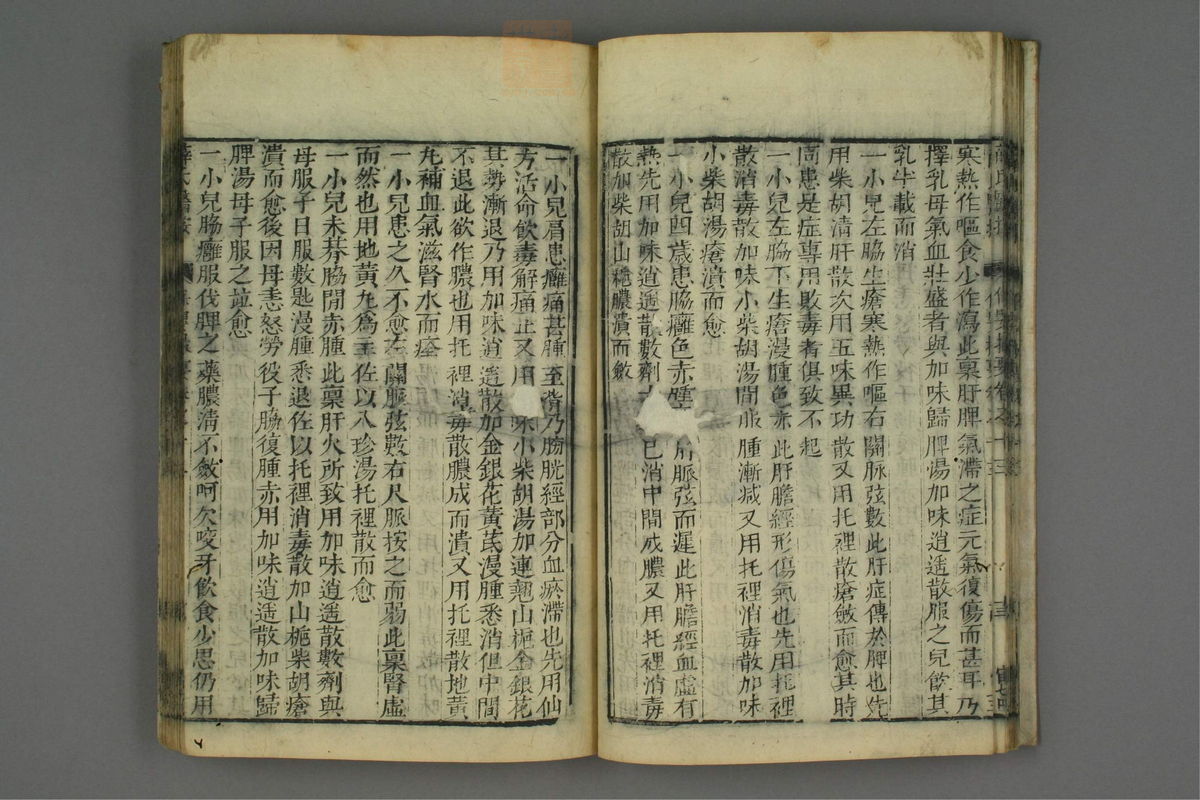 寒熱作嘔食少作瀉此稟肝脾氣滯之症元氣復傷而甚耳乃
擇乳母氣血壯盛者與加味歸脾湯加味逍遙散服之兒飲其
乳半載而消
一小兒左脇生瘡寒熱作嘔右關脉弦數此肝症傳於脾也先
用柴胡清肝散次用五味異功散又用托裡散瘡斂而愈其時
同患是症專用敗毒者俱致不起
一小兒左脇下生瘡漫腫色赤此肝膽經形傷氣也先用托裡
散消毒散加味小柴胡湯間服腫漸減又用托裡消毒散加味
小柴胡湯瘡潰而愈
一小兒四歲患脇癰色赤腫 肝脈弦而遲此肝膽經血虛有
熱先用加味逍遙散數劑 已消中間成膿又用托裡消毒
散加柴胡山梔膿潰而斂
一小兒肩患癰痛甚腫至背乃膀胱經部分血瘀滯也先用仙
方活命飲毒解痛止又用 味小柴胡湯加連翹山梔金銀花
其勢漸退乃用加味逍遙散加金銀花黃芪漫腫悉消但中間
不退此欲作膿也用托裡消毒散膿成而潰又用托裡散地黃
丸補血氣滋腎水而痊
一小兒患之久不愈左關脈弦數右尺脈按之而弱此稟腎虛
而然也用地黃丸爲主佐以八珍湯托裡散而愈
一小兒未朞脇間赤腫此稟肝火所致用加味逍遙散數劑與
母服子日服數匙漫腫悉退佐以托裡消毒散加山梔柴胡瘡
潰而愈後因母恚怒勞役子脇復腫赤用加味逍遙散加味歸
脾湯母子服之並愈
一小兒脇癰服伐脾之藥膿清不斂呵欠咬牙飲食少思仍用